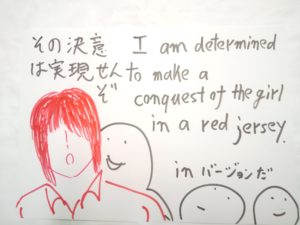 その決意
は実現せん
ぞ
I am determined
to make a
conquest of the girl
in a red jersey.
in バージョンだ